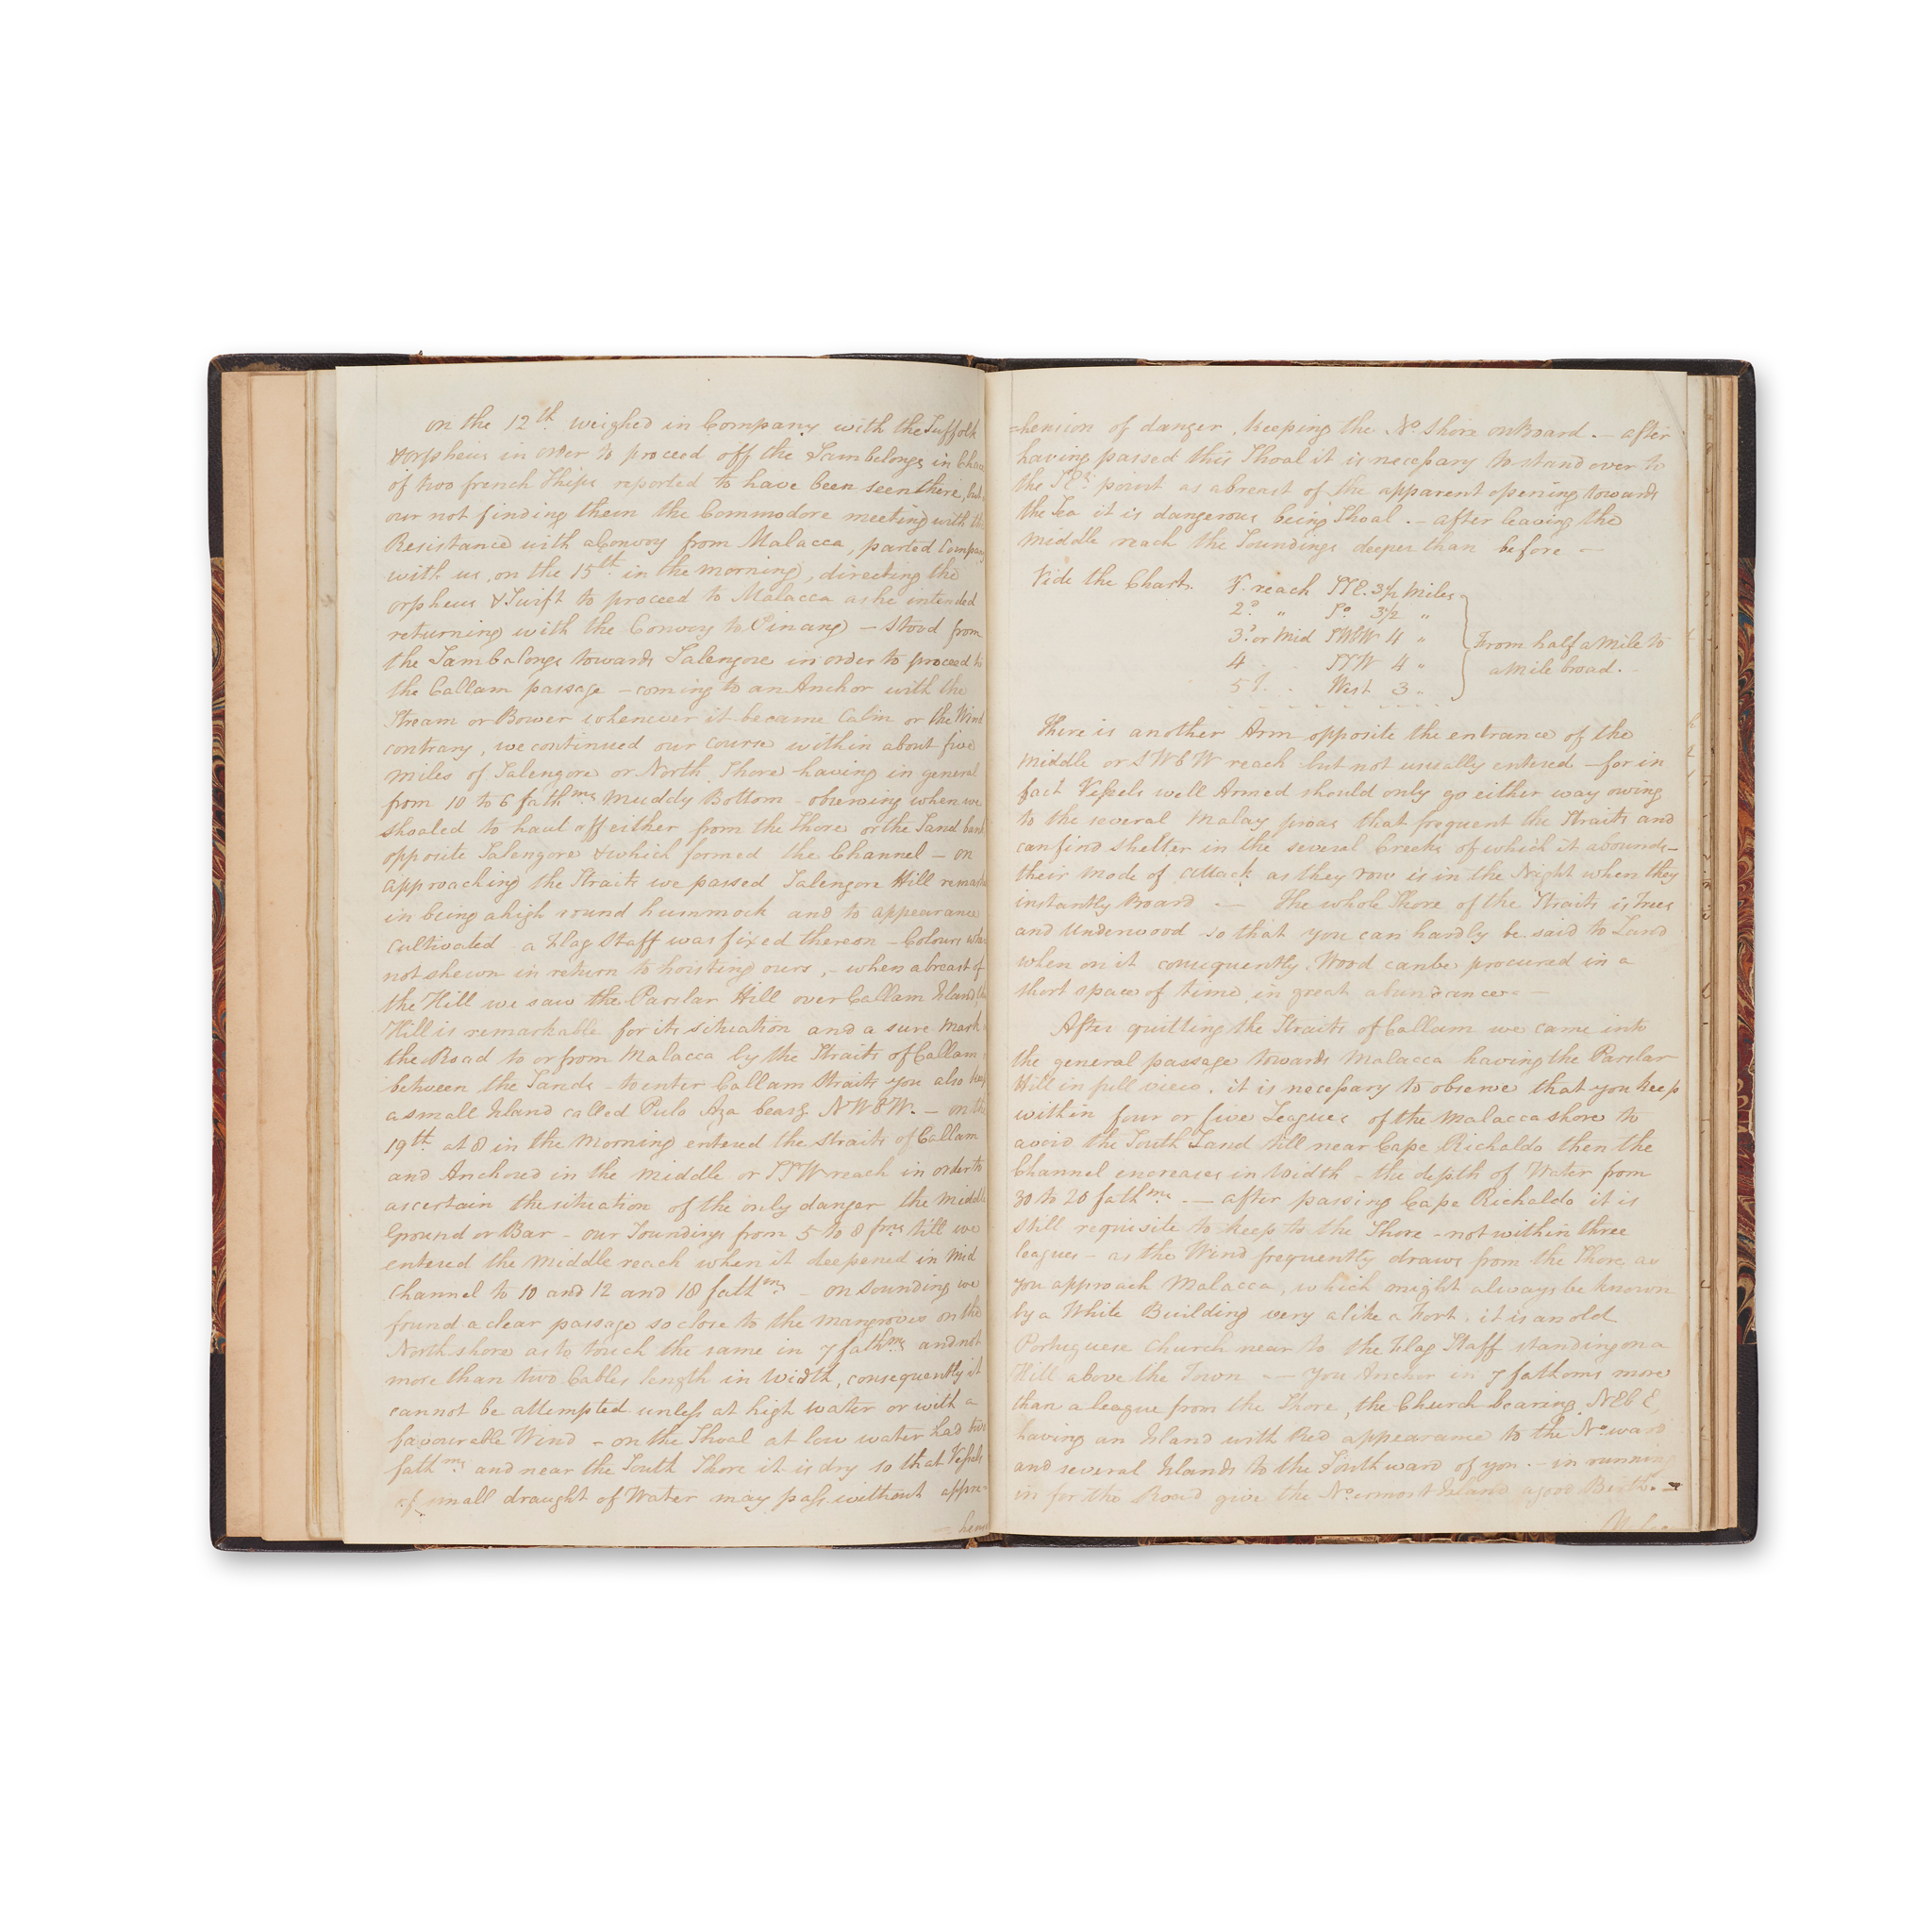 on the 12th weighed in Company with the Suffolk
& Orpheus in order to proceed off the Sambelongs in Chace
of two french Ships reported to have been seen there, but
our not finding them the Commodore meeting with the
Resistance with a Convoy from Malacca, parted Company
with us, on the 15th in the morning, directing the
orpheus & Swift to proceed to Malacca as he intended
returning with the Convoy to Pinang — stood from
the Sambelongs towards Salengore in order to proceed to
the Callam passage — coming to an Anchor with the
Stream or Bower whenever it became Calm or the Wind
contrary, we continued our course within about five
miles of Salengore or North Shore having in general
from 10 to 6 fathms Muddy Bottom - observing when we
shoaled to haul off either from the Shore or the Sand bank
opposite Salengore & which formed the Channel — on
approaching the Straits we passed Salengore Hill
in being a high round hummock and to appearance
cultivated a Flag Staff was fixed thereon - Colours
not shewn in return to hoisting ours, - when abreast of
the Hill we saw the Parslar Hill over Callam Island,
Hill is remarkable for its situation and a sure mark
the Road to or from Malacca by the Straits of Callam
between the Sands - to enter Callam Straits you also keep
a small Island called Pulo Aza bearg NWBW. — on the
19th at 8 in the Morning entered the Straits of Callam
and Anchored in the middle or SSW reach in order to
ascertain the situation of the only danger the Middle
Ground or Bar - our Soundings from 5 to 8 fms till we
entered the Middle reach when it deepened in Mid
Channel to 10 and 12 and 18 fathms - on Sounding we
found a clear passage so close to the mangroves on the
North shore as to touch the same in 7 fathms and not
more than two Cables length in Width, consequently it
cannot be attempted unless at high water or with a
favourable Wind - on the Shoal at low water had two
fathms and near the South Shore it is dry so that Vessels
of small draught of Water may pass without appre-
hension
=hension of danger, keeping the No Shore on Board. — after
having passed this Shoal it is necessary to stand over to
the point as abreast of the apparent opening towards
the Sea it is dangerous being Shoal. — after leaving the
middle reach the Soundings deeper than before —
Vide the Chart. 1st reach SSE. 3 1/2 Miles
2d " So 3 1/2 "
3d or Mid SWBW 4 " From half a Mile to
4 SSW 4 " a Mile broad.
5 West 3 "
There is another Arm opposite the entrance of the
Middle or SWBW reach but not usually entered - for in
fact Vessels well Armed should only go either way owing
to the several Malay proas that frequent the Straits and
can find shelter in the several Creeks of which it abounds —
their mode of attack as they row is in the Night when they
instantly Board :— The whole Shore of the Straits is Trees
and Underwood so that you can hardly be said to Land
when on it consequently Wood can be procured in a
short space of time in great abundance —
After quitting the Straits of Callam we came into
the general passage towards Malacca having the Parslar
Hill in full view. it is necessary to observe that you keep
within four or five Leagues of the Malacca shore to
avoid the South Sand till near Cape Richaldo then the
Channel encreases in width - the depth of Water from
30 to 20 fathms. — after passing Cape Richaldo it is
still requisite to keep to the Shore - not within three
leagues - as the Wind frequently draws from the Shore, as
you approach Malacca, which might always be known
by a White Building very alike a Fort, it is an old
Portuguese Church near to the Flag Staff standing on a
Hill above the Town — You Anchor in 7 fathoms more
than a league from the Shore, the Church bearing NEBE,
having an Island with Red appearance to the No ward
and several Islands to the Southward of you. - in running
in for the Road give the Noermost Island a good Berth. —